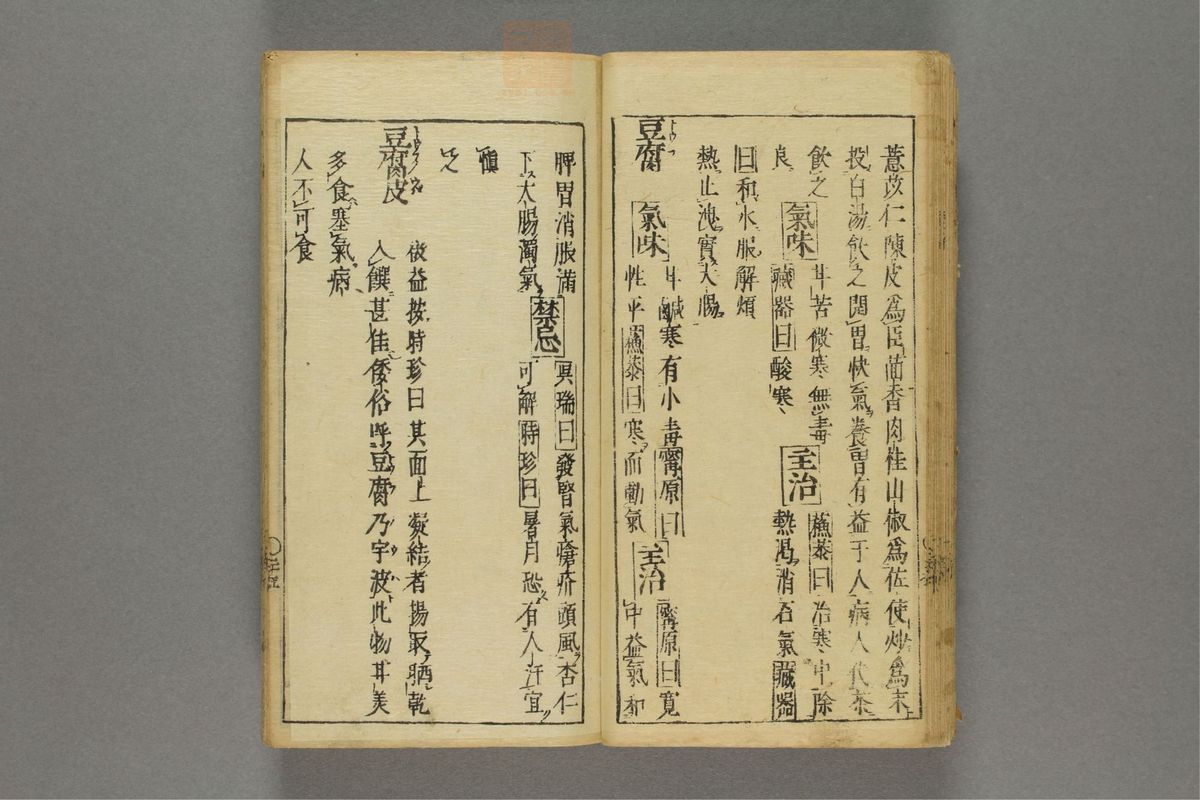 薏苡仁陳皮爲臣茴香肉桂山椒爲佐使炒爲末
投白湯飲之開胃快氣養胃有益于人病人代茶
飲之 氣味 甘苦微寒無毒 主治 蕭炳曰治寒中除
良 藏器曰酸寒 熱渇消石氣 藏器
曰和水服解煩
熱止洩實大腸
豆腐 トウフ 氣味 甘鹹寒有小毒寗原曰 主治 寗原曰寛
性平 曰寒而動氣 中益氣和
脾胃消脹滿 禁忌 呉瑞曰發腎氣瘡疥頭風杏仁
下大腸濁氣 可解時珍曰暑月恐有人汗宜
愼
之
豆腐皮 俶益按時珍曰其面上凝結者揚取晒乾
入饌甚佳倭俗呼豆腐乃宇波此物耳美
多食塞氣病
人不可食